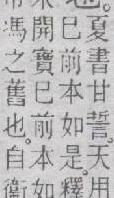 也。夏書甘誓。天用
巳前本如是。釋
開寶巳前本如
馮之舊也。自衛